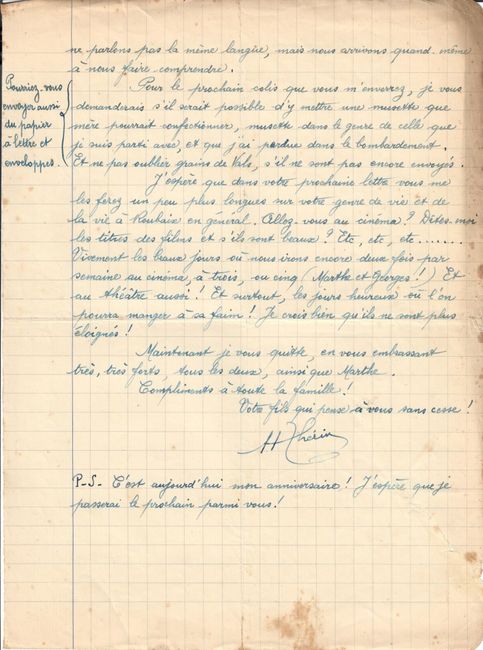 ne parlons pas la même langue, mais nous arrivons quand même
à nous faire comprendre.
Pourriez-vous
envoyer aussi
du papier
à lettre et
enveloppes.
Pour le prochain colis que vous m'enverrez, je vous
demanderais s'il serait possible d'y mettre une musette que
mère pourrait confectionner, musette dans le genre de celle que
je suis parti avec, et que j'ai perdue dans le bombardement.
Et ne pas oublier grains de Vals, s'il ne sont pas encore envoyés.
J'espère que dans votre prochaine lettre vous me
les ferez un peu plus longues sur votre genre de vie et de
la vie à Roubaix en général. Allez-vous au cinéma ? Dites-moi
les titres des films et s'ils sont beaux ? Etc, etc, etc.......
Vivement les beaux jours où nous irons encore deux fois par
semaine au cinéma, à trois, ou cinq (Marthe et Georges !) Et
au théâtre aussi ! Et surtout, les jours heureux où l'on
pourra manger à sa faim ! Je crois bien qu'ils ne sont plus
éloignés !
Maintenant je vous quitte, en vous embrassant
très, très forts, tous les deux, ainsi que Marthe.
Compliments à toute la famille !
Votre fils qui pense à vous sans cesse !
P-S- C'est aujourd'hui mon anniversaire ! J'espère que je
passerai le prochain parmi vous !